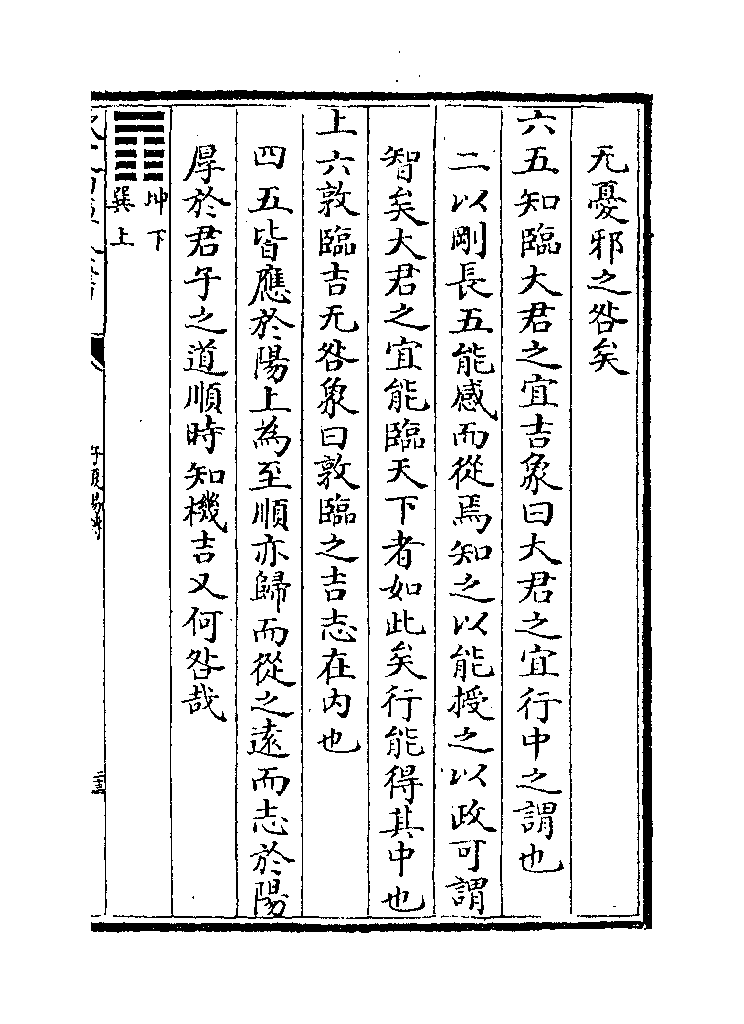 无憂邪之咎矣
六五知臨大君之宜吉象曰大君之宜行中之謂也
二以剛長五能感而從焉知之以能授之以政可謂
智矣大君之宜能臨天下者如此矣行能得其中也
上六敦臨吉无咎象曰敦臨之吉志在內也
四五皆應於陽上為至順亦歸而從之遠而志於陽
厚於君子之道順時知機吉又何咎哉
坤下
巽上
子夏易傳